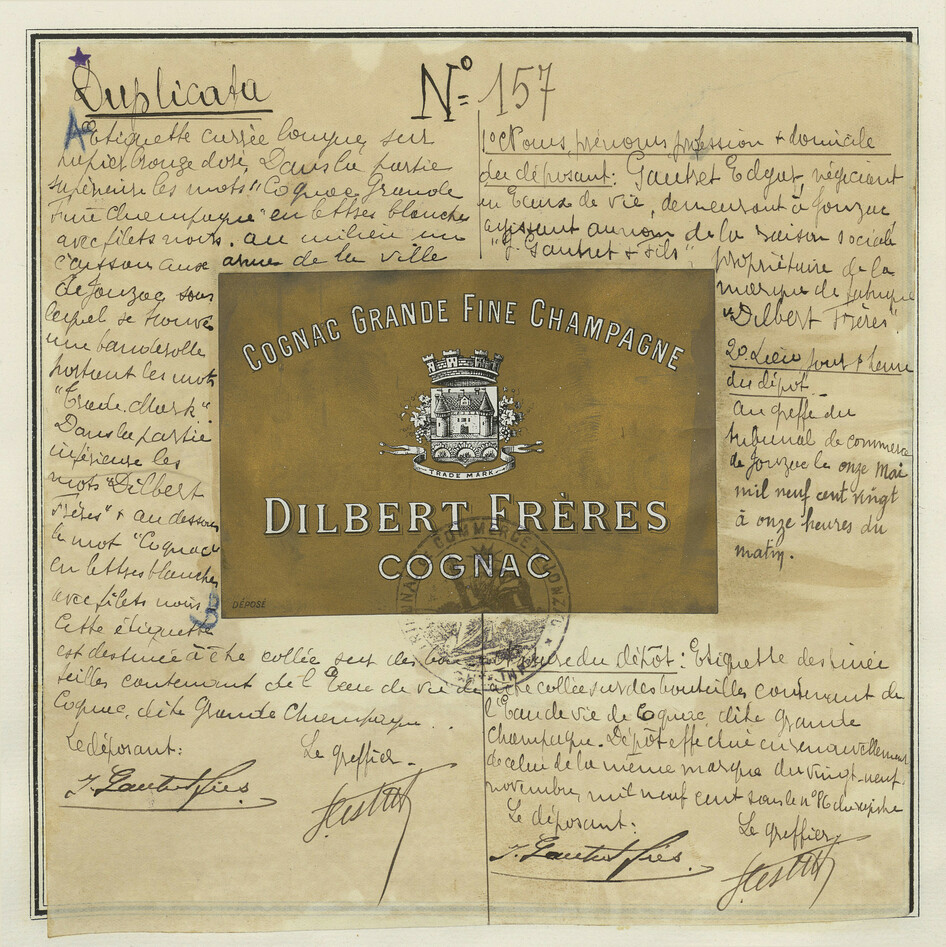 Duplicata
Nº 157
Etiquette carrée longue sur
papier rouge doré, Dans la partie
supérieure les mots "Cognac Grande
Fine Champagne" en lettres blanches
avec filets noirs. au milieu un
aux armes de la ville
de Jonzac, sous
lequel se trouve
une banderolle
portant les mots
"Trade Mark"
Dans la partie
inférieure les
mots "Dilbert
Frères" + au dessous
le mot "Cognac"
en lettres blanches
avec filets noirs
Cette étiquette
est destinée à être collée sur des bou
teilles contenant de l'Eau de vie de
Cognac, dite Grande Champagne.
Le déposant:
Le greffier.
J. Gautret fils
1º Noms, prénoms, profession + domicile
du déposant: Gautret Edgar, négociant
en Eaux de vie, demeurant à Jonzac
agissant au nom de la raison sociale
"J. Gautret + Fils", propriétaire de la
marque de fabrique
"Dilbert Frères".
2º Lieu jour + heure
du dépôt.
au greffe du
tribunal de commerce
de Jonzac le onze Mai
mil neuf cent vingt
à onze heures du
matin.
COGNAC GRANDE FINE CHAMPAGNE
TRADE MARK
DILBERT FRÈRES
COGNAC
DÉPOSÉ
TRIBUNAL DE COMMERCE JONZAC
du dépôt: Etiquette destinée
à être collée sur des bouteilles contenant de
l'Eau de vie de Cognac, dite grande
Champagne. Dépôt effectué en renouvellement
de celui de la même marque du vingt-neuf
novembre, mil neuf cent sous le nº 86 du registre
Le déposant:
Le greffier
J. Gautret fils.